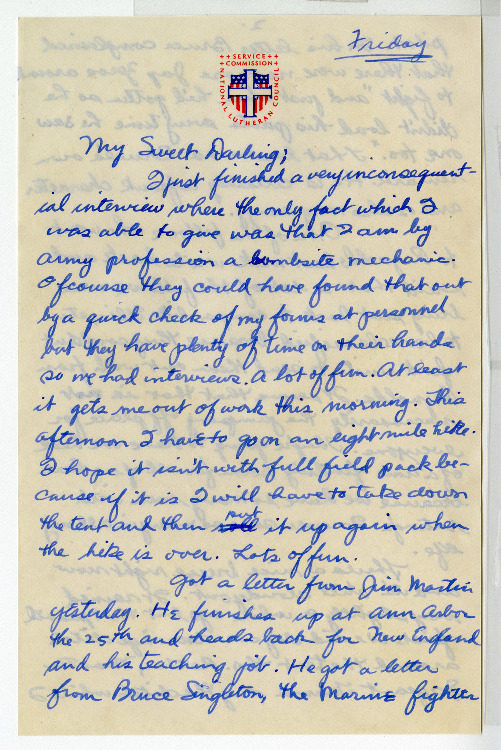 Friday
SERVICE
COMMISSION
NATIONAL LUTHERAN COUNCIL
My Sweet Darling;
I just finished a very inconsequent-
ial interview where the only fact which I
was able to give was that I am by
army profession a bombsite mechanic.
Ofcourse they could have found that out
by a quick check of my forms at personnel
but they have plenty of time on their hands
so we had interviews. A lot of fun. At least
it gets me out of work this morning. This
afternoon I have to go on an eight mile hike.
I hope it isn't with full field pack be-
cause if it is I will have to take down
the tent and then put it up again when
the hike is over. Lots of fun.
Got a letter from Jim Martin
yesterday. He finishes up at Ann Arbor
the 25th and heads back for New England
and his teaching job. He got a letter
from Bruce Singleton, the Marine fighter